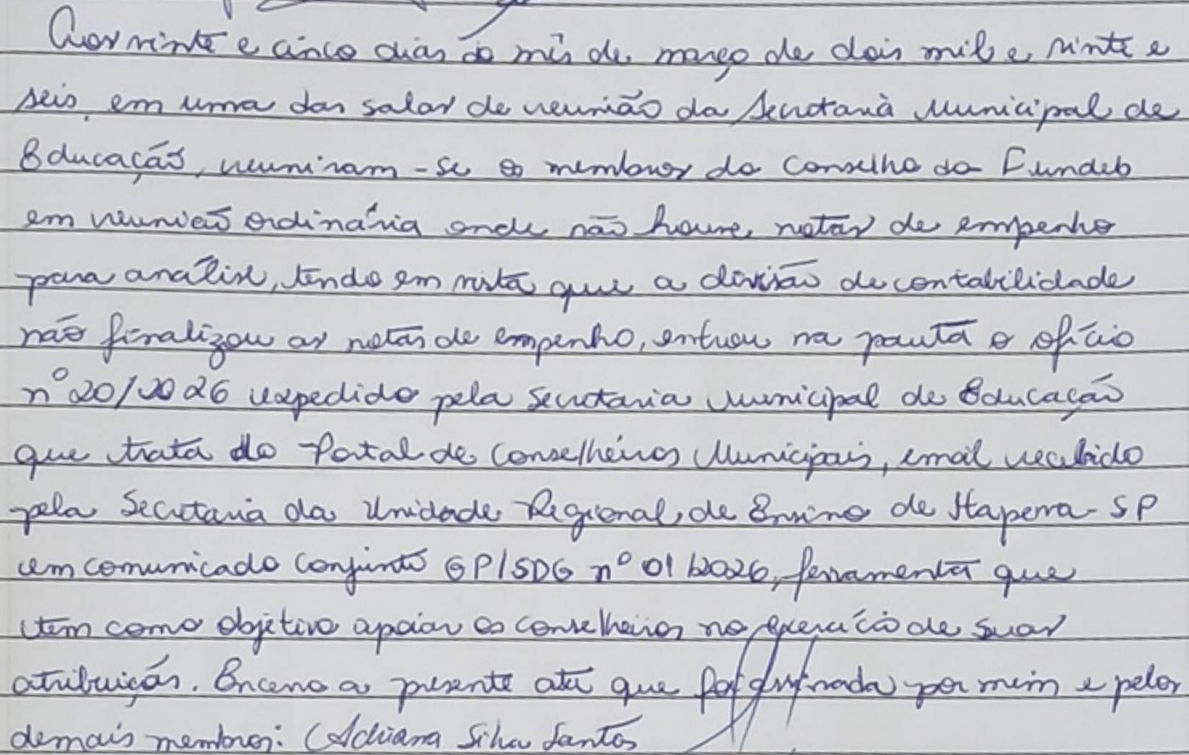 Aos vinte e cinco dias do mês de março de dois mil e vinte e
seis, em uma das salas de reunião da Secretaria Municipal de
Educação, reuniram-se os membros do Conselho do Fundeb
em reunião ordinária onde não houve, notas de empenho
para análise, tendo em vista que a divisão de contabilidade
não finalizou as notas de empenho, entrou na pauta o ofício
nº 20/2026 expedido pela Secretaria Municipal de Educação
que trata do Portal de Conselheiros Municipais, email recebido
pela Secretaria da Unidade Regional de Ensino de Itapeva-SP
em comunicado conjunto GP/SDG nº 01/2026, ferramenta que
tem como objetivo apoiar os conselheiros no exercício de suas
atribuições. Encerro a presente ata que por mim e pelos
demais membros: Adriana Silva Santos